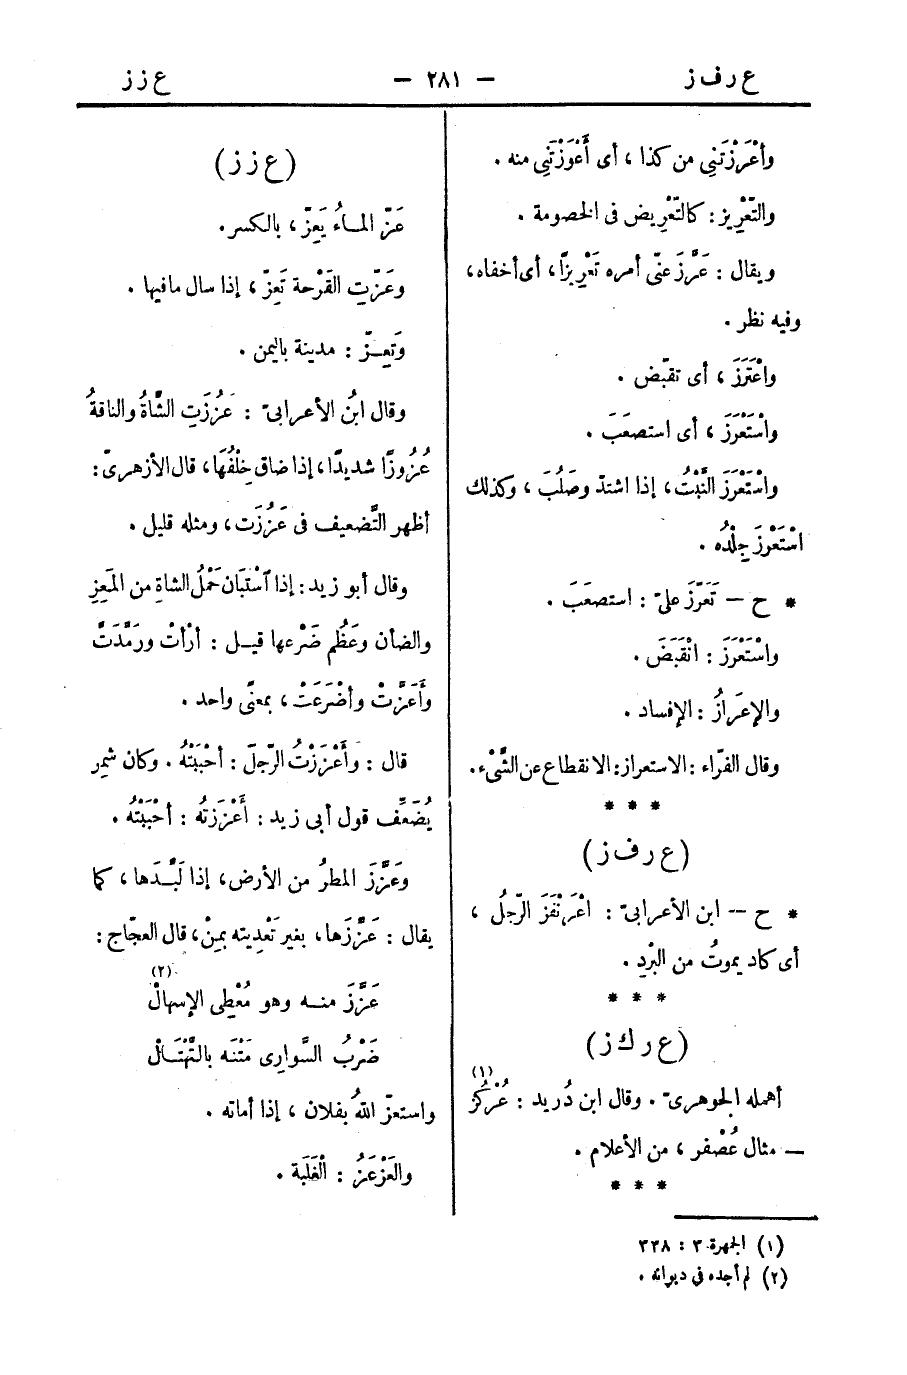 ع ر ف ز — ٢٨١ — ع ز ز
وأَعْرَزْتَنِي من كذا ، أى أَعْوَزْتَنِي منه .
والتَّعْرِيز : كالتَّعْرِيض فى الخصومة .
ويقال : عَرَّزَ عنّى أمره تَعْرِيزًا ، أى أخفاه ،
وفيه نظر .
واعْتَرَزَ ، أى تقبّض .
واسْتَعْرَزَ ، أى استصعَبَ .
واسْتَعْرَزَ النَّبْتُ ، إذا اشتدّ وصَلُبَ ، وكذلك
اسْتَعْرَزَ جِلْدُه .
* ح — تَعَرَّزَ علىّ : استصعَبَ .
واسْتَعْرَزَ : انْقَبَضَ .
والإعرَازُ : الإفساد .
وقال الفرّاء : الاستعراز : الانقطاع عن الشَّىْء .
* * *
(ع ر ف ز)
* ح — ابن الأعرابىّ : اعْرَنْفَزَ الرّجلُ ،
أى كاد يموتُ من البرْدِ .
* * *
(ع ر ك ز)
أهمله الجوهرىّ . وقال ابن دُريد : عُرْكُز (١)
— مثال عُصْفر ، من الأعلام .
* * *
(ع ز ز)
عَزّ المـاءُ يَعِزّ ، بالكسر .
وعَزّتِ القَرْحة تَعِزّ ، إذا سال مافيها .
وَتَعِـزّ : مدينة باليمن .
وقال ابنُ الأعرابىّ : عَزُزَتِ الشّاةُ والناقةُ
عُزُوزًا شديدا ، إذا ضاق خِلْفُهَا ، قال الأزهرىّ :
أظهر التَّضعيف فى عَزُزَت ، ومثله قليل .
وقال أبو زيد : إذا اَسْتَبان حَمْلُ الشاةِ من المَعِزِ
والضأن وعَظُم ضَرْعها قيـل : أرْأتْ ورَمَّدَتْ
وأَعَزَّتْ وأضْرَعَتْ ، بمعنًى واحد .
قال : وأَعْزَزْتُ الرّجلَ : أحْبَبْتُهُ . وكان شَمِر
يُضَعِّف قول أبى زيد : أَعْزَزتهُ : أحْبَبْتُهُ .
وعَزَّزَ المطرُ من الأرض ، إذا لَبَّـدَها ، كما
يقال : عَزَّزَها ، بغير تَعْدِيته بمِنْ ، قال العجّاج :
عَزَّزَ منـه وهو مُعْطِى الإسهالْ (٢)
ضَرْبُ السَّوارِى مَتْنَه بالتَّهْتَـالْ
واستعزّ اللهُ بفلان ، إذا أماته .
والعَزْعَزُ : الْغَلَبَة .
(١) الجمهرة ٣ : ٣٣٨
(٢) لم أجده فى ديوانه .